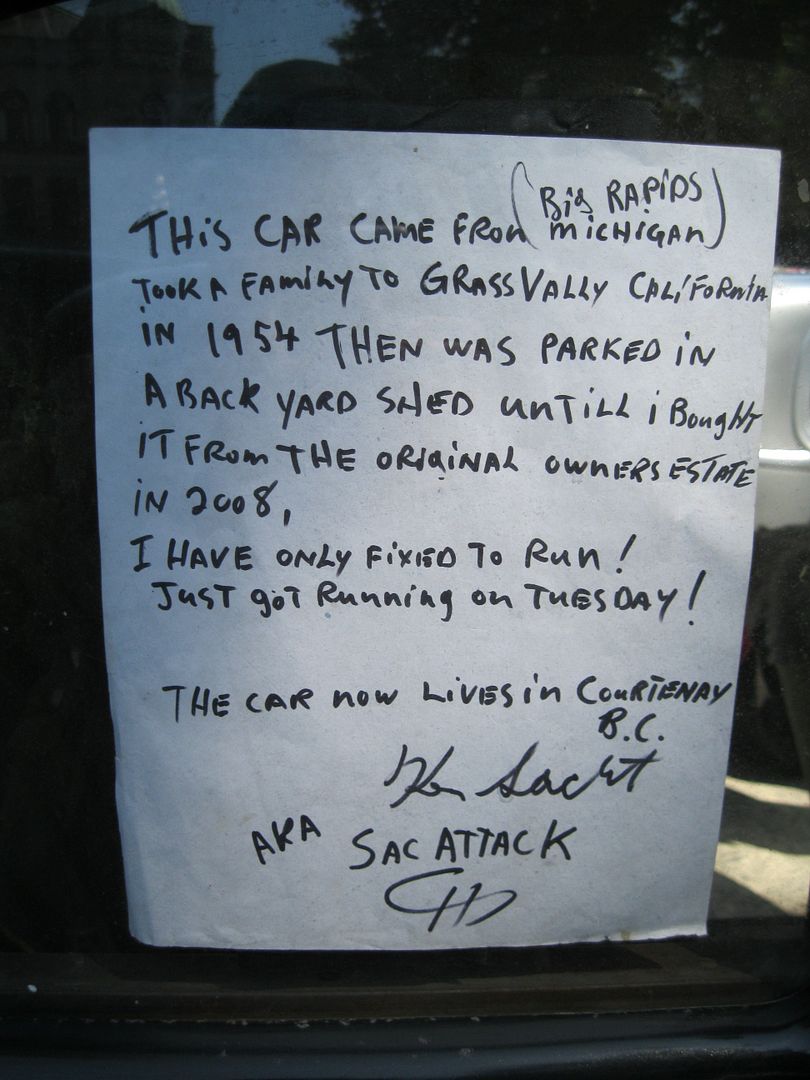 THiS CAR CAME FROM (BiG RAPiDS MiCHIGAN)
TOOK A FAMiLY TO GRASS VALLY CALiFORNiA
iN 1954 THEN WAS PARKED iN
A BACK YARD SHED UNTiLL i BOUgHT
IT FROM THE ORIGiNAL OWNERS ESTATE
iN 2008,
I HAVE ONLY FiXED TO RUN!
JUST gOT RUNNiNg ON TUESDAY!
THE CAR NOW LiVES iN COURTENAY
B.C.
Ken
AKA SAC ATTACK